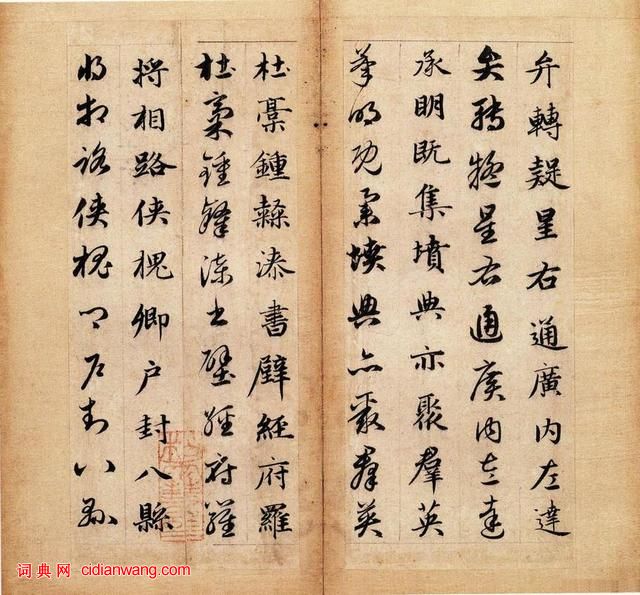 弁轉疑星右通廣内左達
弁轉疑星右通廣内左達
承明既集墳典亦聚羣英
承明既集墳典亦聚羣英
杜稾鍾隸漆書壁經府羅
杜稾鍾隸漆書壁經府羅
將相路俠槐卿户封八縣
將相路俠槐卿户封八縣
词典网：cidianwang.com